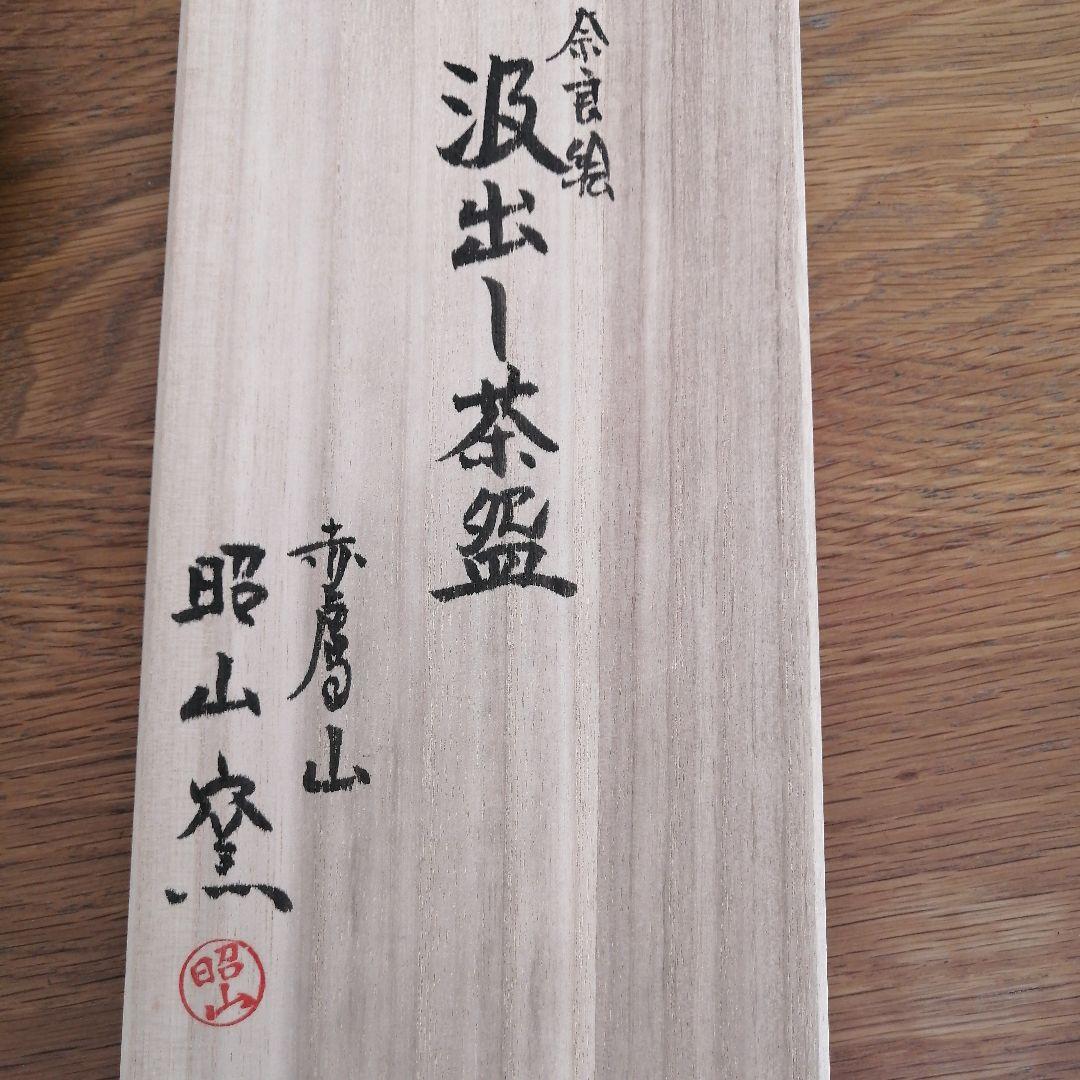 奈良絵
汲出し茶盌
赤膚山
昭山窯
昭山